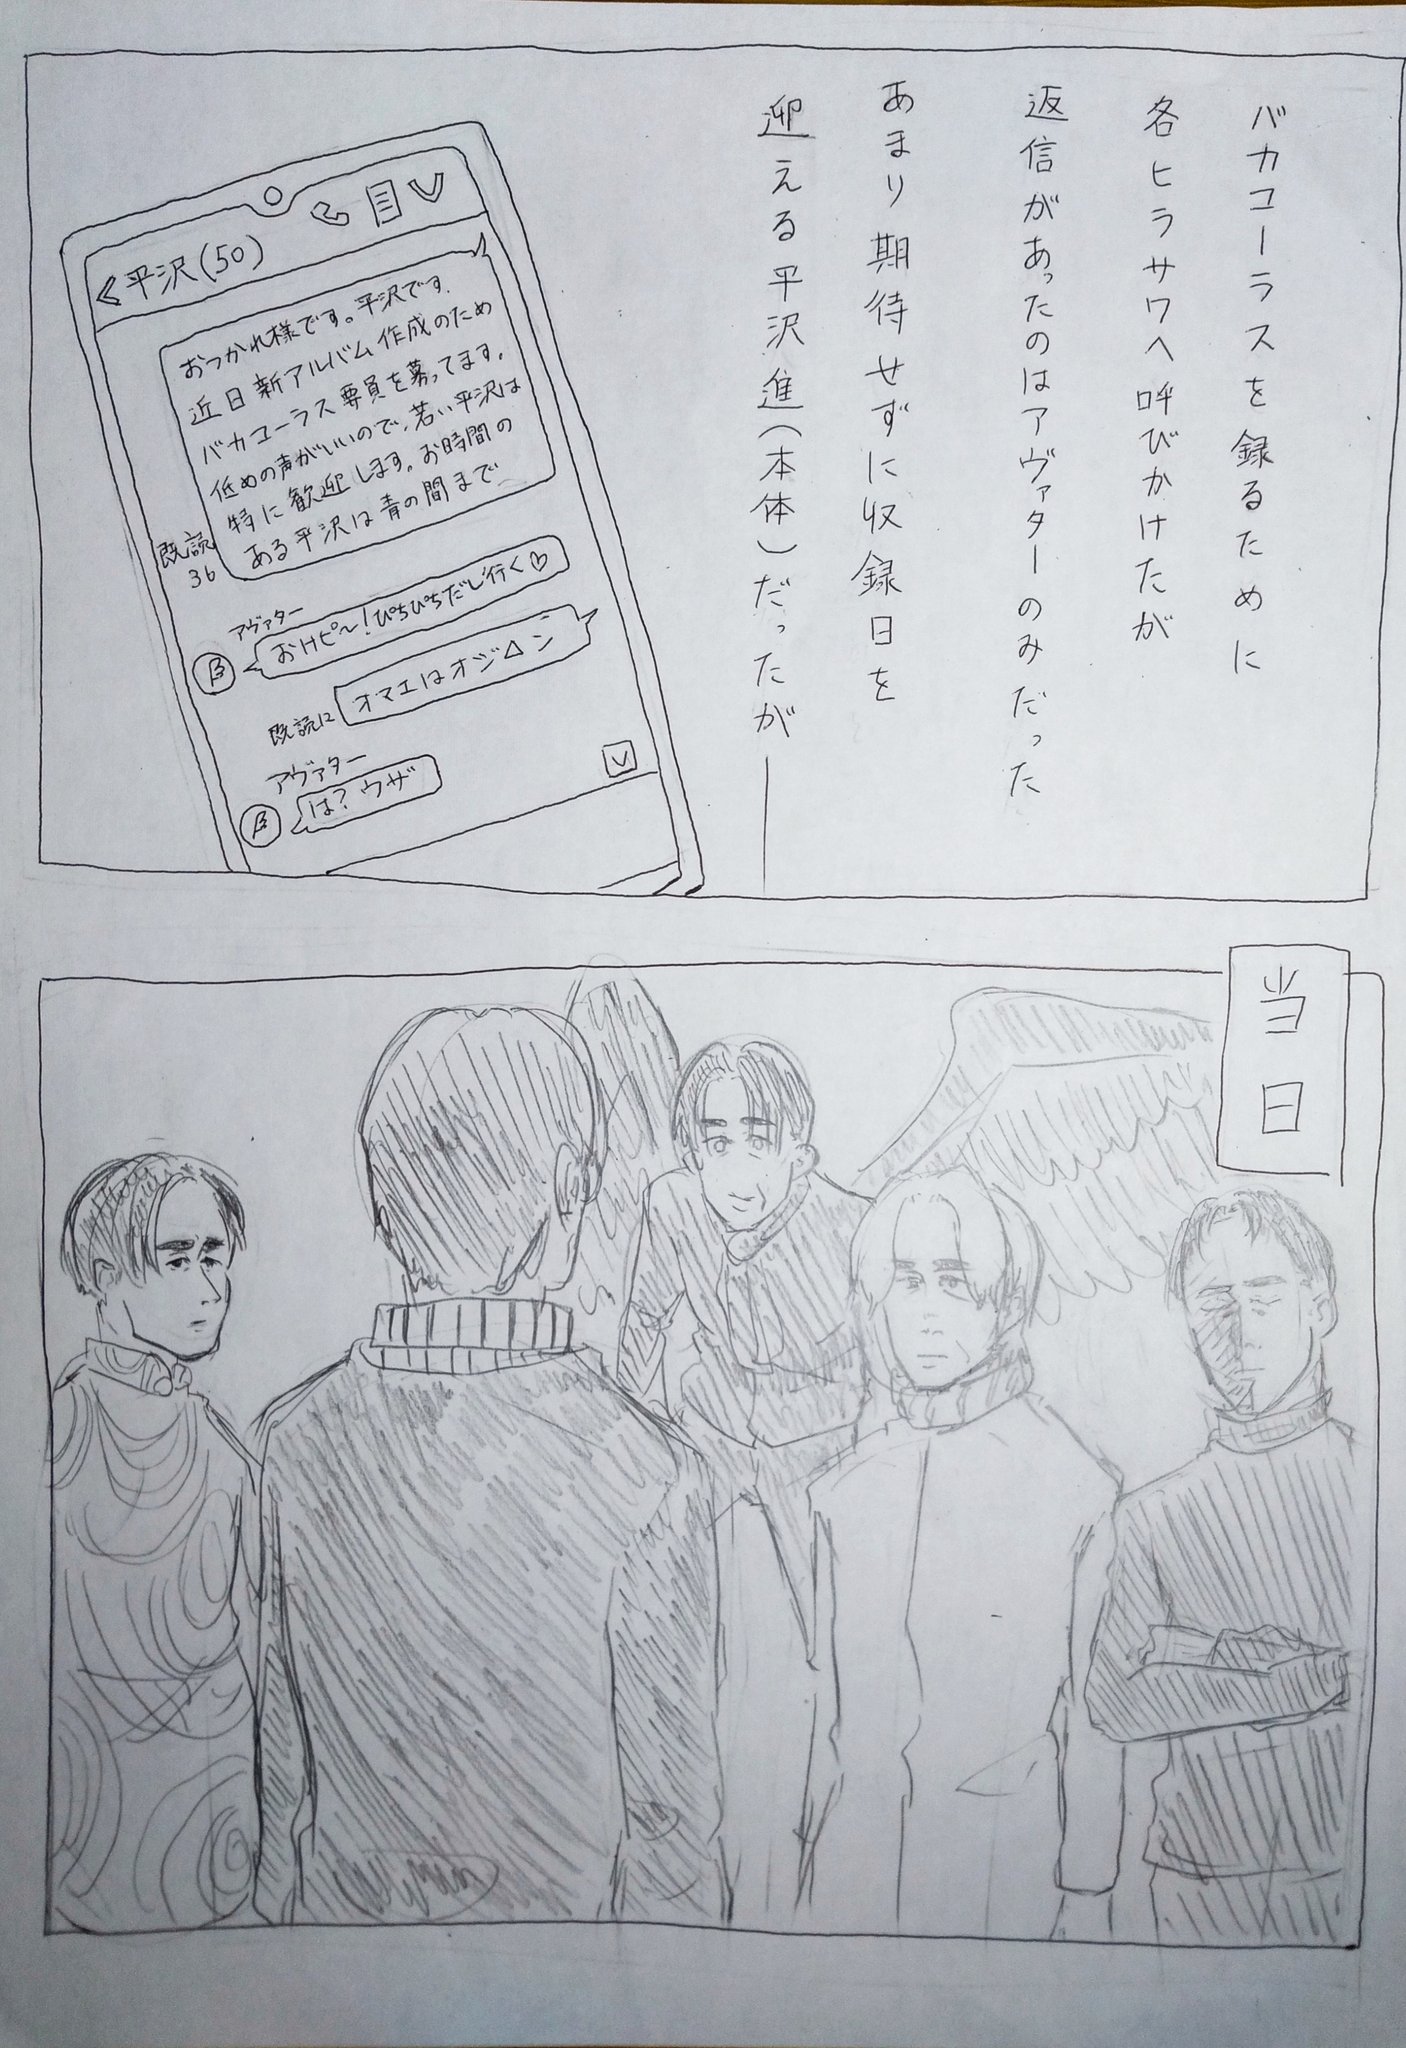 バカコーラスを録るために
各ヒラサワへ呼びかけたが
返信があったのはアヴァターのみだった
あまり期待せずに収録日を
迎える平沢進(本体)だったが――
平沢(50)
おつかれ様です。平沢です.
近日新アルバム作成のため
バカコーラス要員を募ってます。
低めの声がいいので、若い平沢は
特に歓迎します。お時間の
ある平沢は青の間まで
既読
36
アヴァター
おけピ～!ぴちぴちだし行く♡
オマエはオジ△ン
既読12
アヴァター
は?ウザ
当日